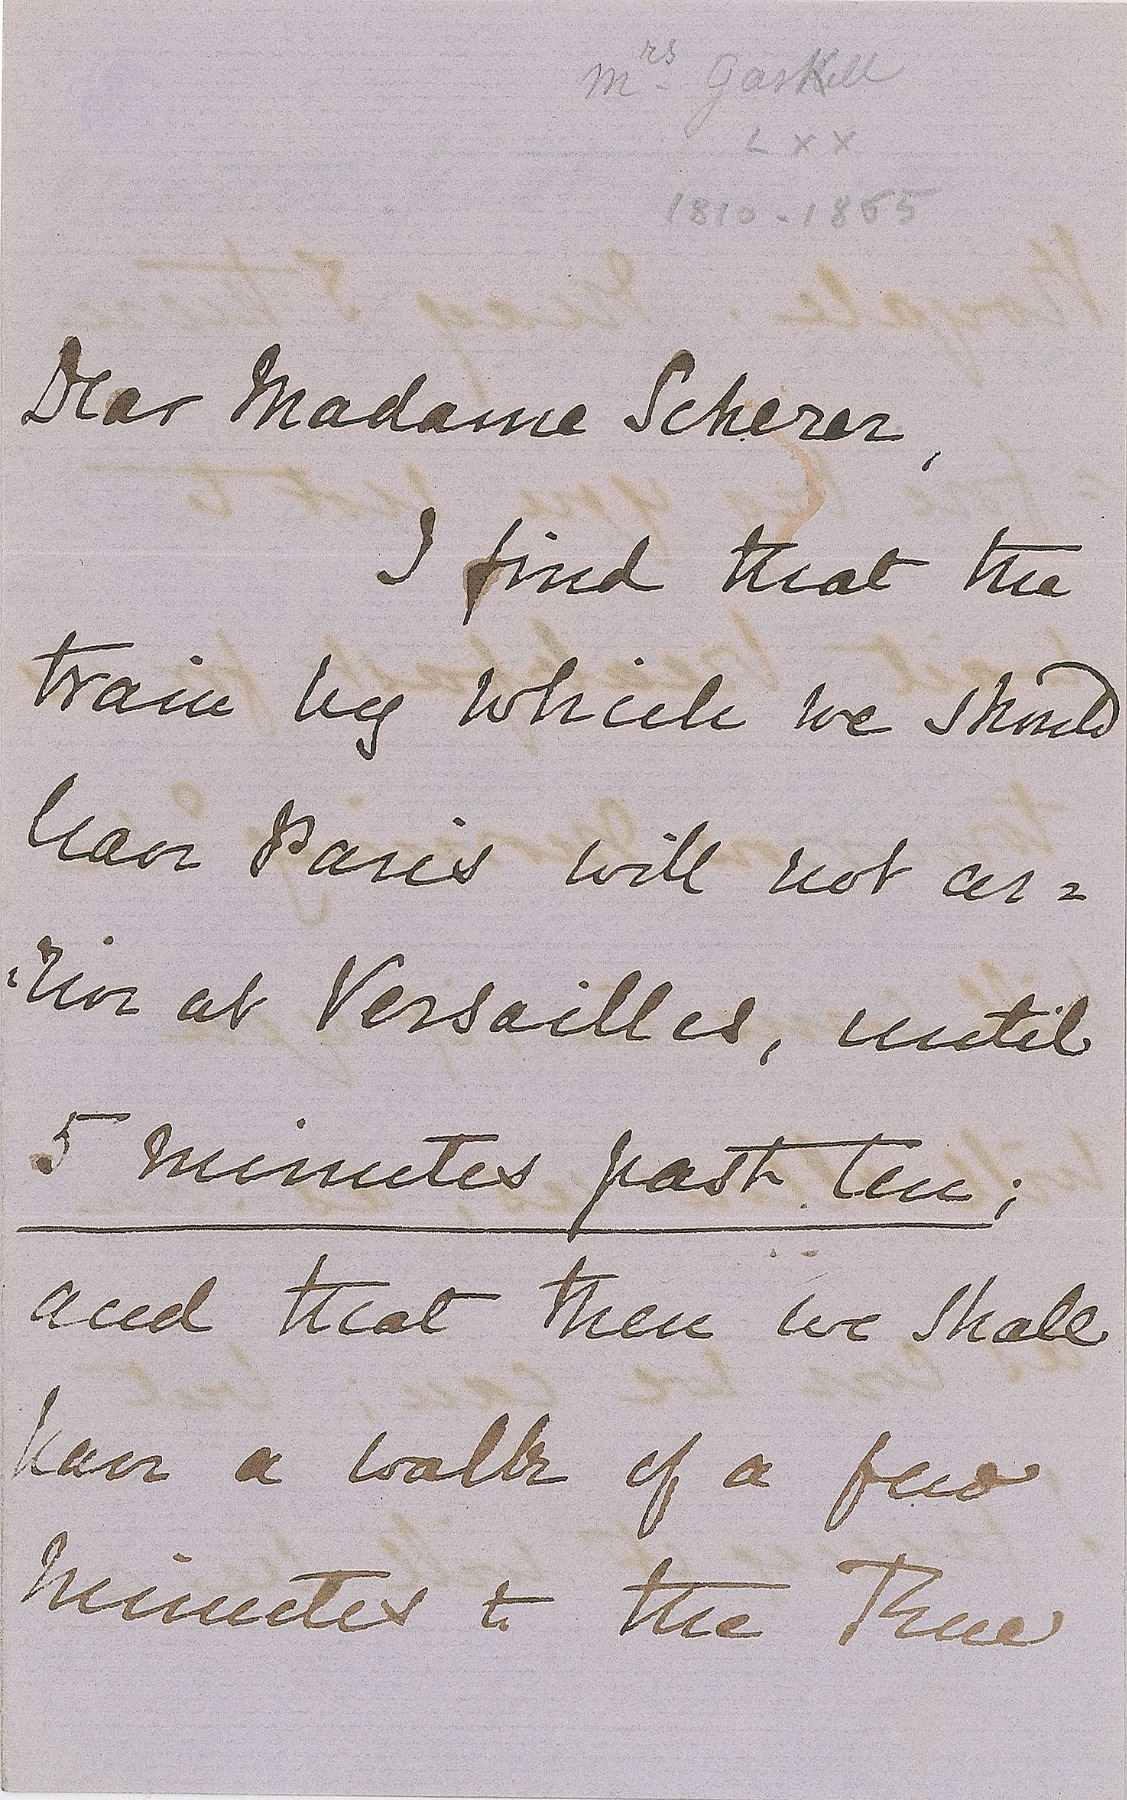 Mrs Gaskell
L x x
1810-1865
Dear Madame Scherer,
I find that the
train by which we should
leave Paris will not ar=
=rive at Versailles, until
5 minutes past ten;
and that then we shall
have a walk of a few
minutes to the Rue